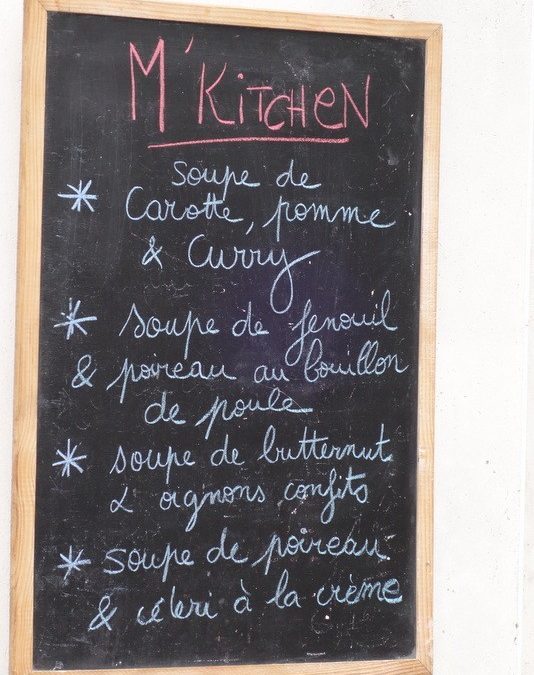 M'KITCHEN
soupe de
* Carotte, pomme
& Curry
* soupe de fenouil
& poireau au bouillon
de poule
* soupe de butternut
& oignons confits
* soupe de poireau
& céleri à la crème